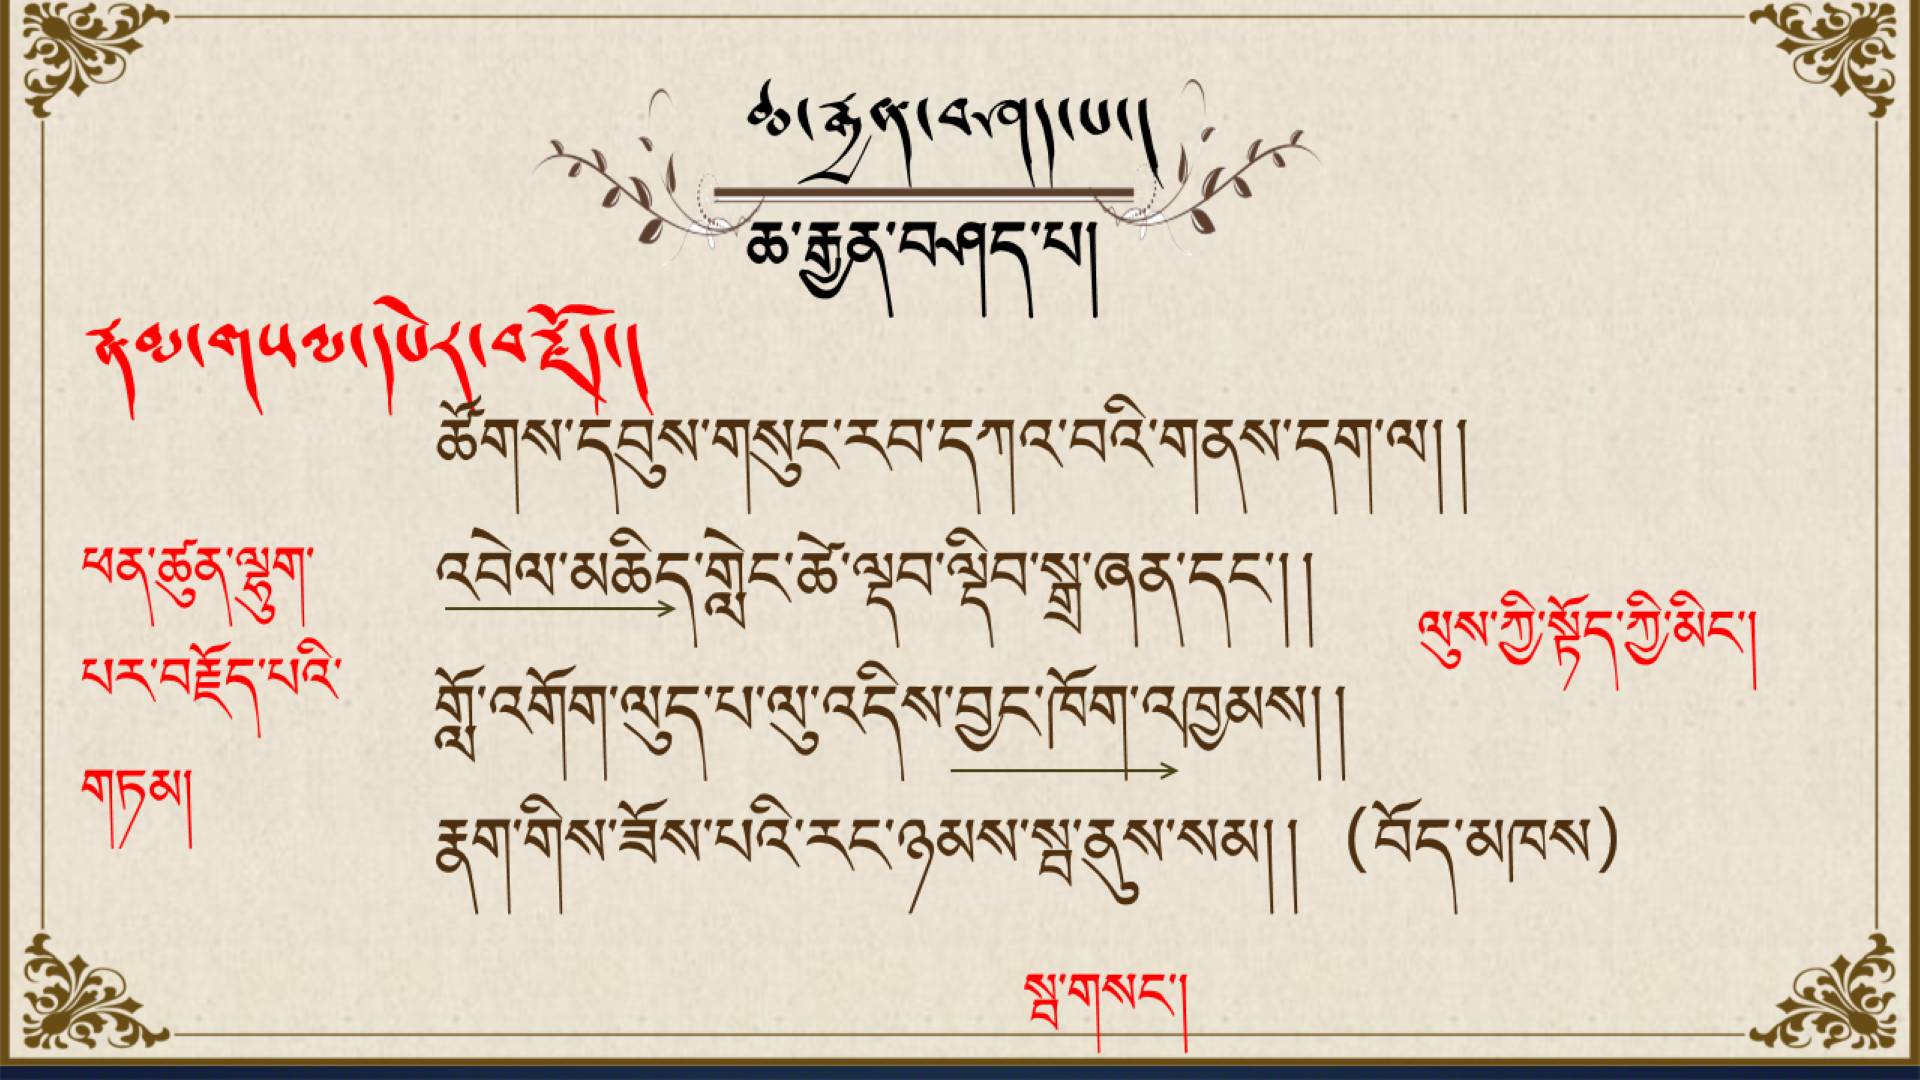 ཆ་རྐྱེན་བཤད་པ།
ཆ་རྐྱན་བཤད་པ།
ཚོགས་དབུས་གསུང་རབ་དཀའ་བའི་གནས་དག་ལ།།
ཕན་ཚུན་ལྷུག་
འབེལ་མཆིད་གླེང་ཚེ་ལྡབ་ལྡིབ་སྒྲ་ཞན་དང་།།
ལུས་ཀྱི་སྟོད་ཀྱི་མིང་།
པར་བརྗོད་པའི་
གློ་འགོག་ལུད་པ་ལུ་འདིས་བྱང་ཁོག་འཁྱམས།།
གཏམ།
རྣག་གིས་ཟོས་པའི་རང་ཉམས་སྦ་ནུས་སམ།། (བོད་མཁས)
སྦ་གསང་།